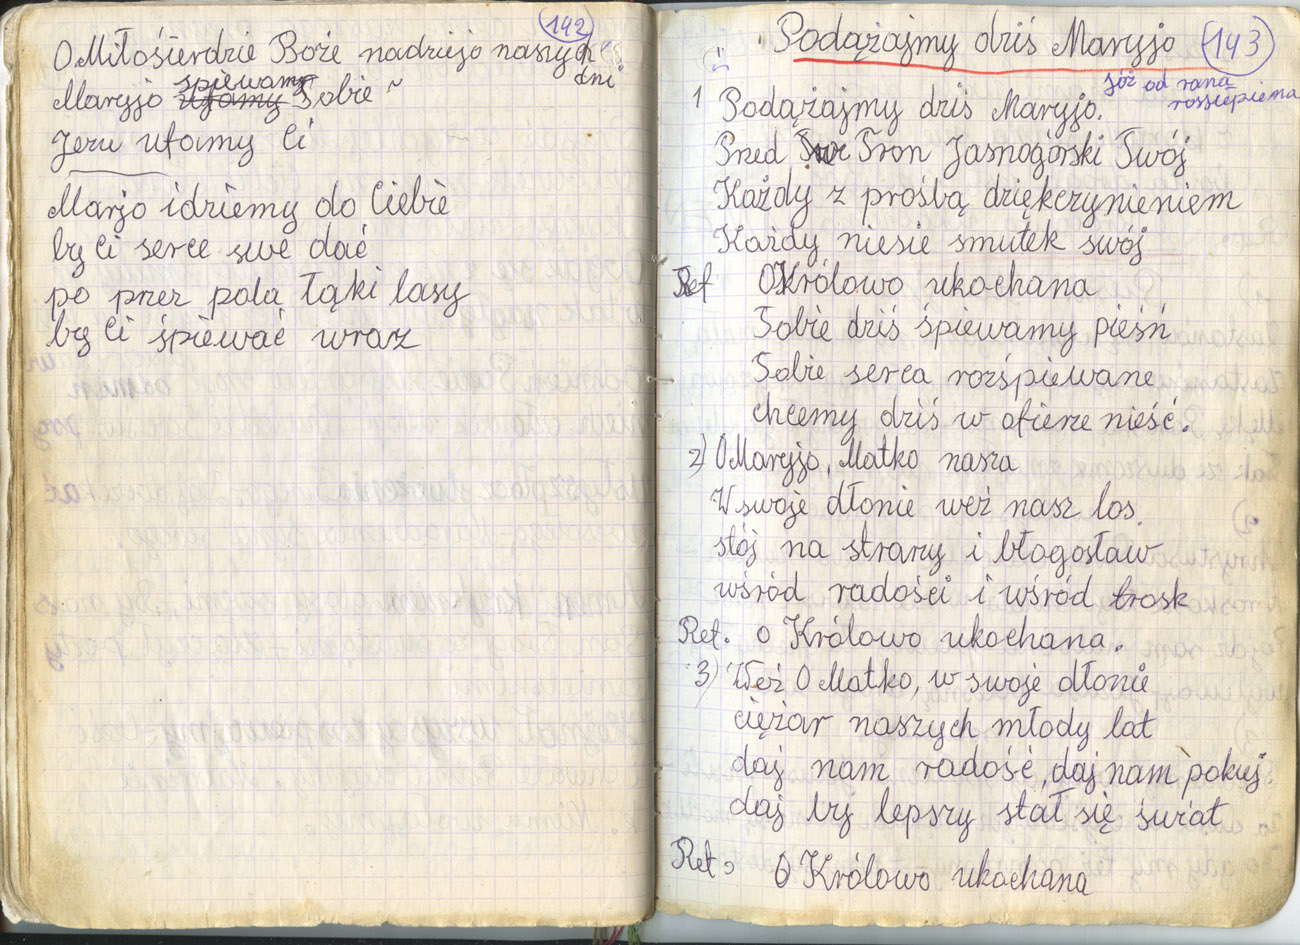 142
O Miłośierdzie Boże nadziejo naszych
dni
śpiewamy
Maryjo ufamy Tobie
Jezu ufamy Ci
Marjo idziemy do Ciebie
by Ci serce swe dać
po przez pola łąki lasy
by Ci śpiewać wraz
Podążajmy dziś Maryjo 143
Jóż od rana
rosśpiepiema
1 Podążajmy dziś Maryjo.
Przed Tron Jasnogórski Twój
Każdy z prośbą dziękczynieniem
Każdy niesie smutek swój
Ref O Królowo ukochana
Tobie dziś śpiewamy pieśń
Tobie serca rozśpiewane
chcemy dziś w ofierze nieść.
2) O Maryjo, Matko nasza
W swoje dłonie weź nasz los.
stój na straży i błogosław
wśród radości i wśród trosk
Ref. O Królowo ukochana.
3) Weź O Matko, w swoje dłonie
ciężar naszych młody lat
daj nam radość, daj nam pokuj.
daj by lepszy stał się świat
Ref. O Królowo ukochana